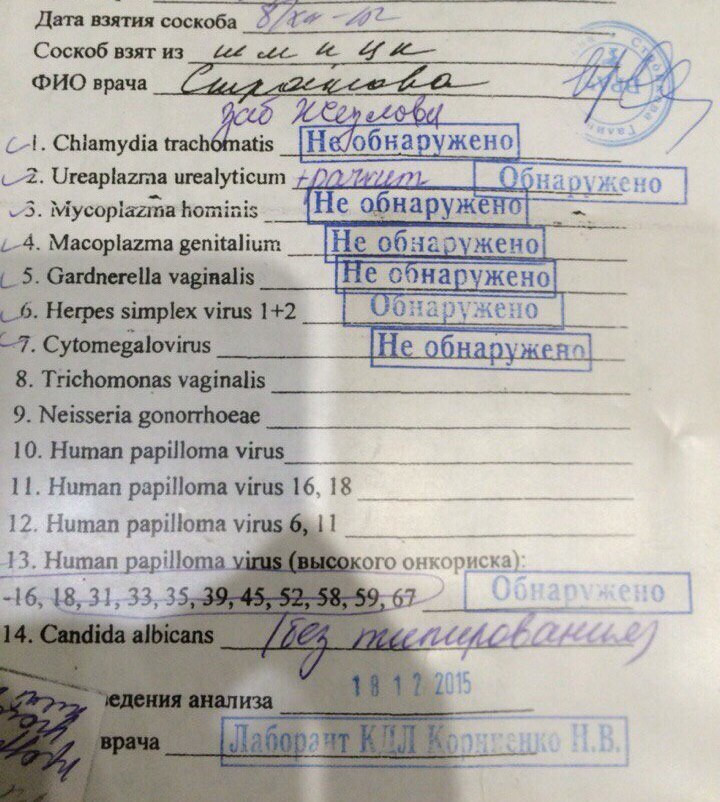 Дата взятия соскоба 8/XII-
Соскоб взят из
ФИО врача
1. Chlamydia trachomatis Не обнаружено
2. Ureaplazma urealyticum Обнаружено
3. Mycoplazma hominis Не обнаружено
4. Macoplazma genitalium Не обнаружено
5. Gardnerella vaginalis Не обнаружено
6. Herpes simplex virus 1+2 Обнаружено
7. Cytomegalovirus Не обнаружено
8. Trichomonas vaginalis
9. Neisseria gonorrhoeae
10. Human papilloma virus
11. Human papilloma virus 16, 18
12. Human papilloma virus 6, 11
13. Human papilloma virus (высокого онкориска):
16, 18, 31, 33, 35, 39, 45, 52, 58, 59, 67 Обнаружено
14. Candida albicans (без типирования)
ведения анализа 18 12 2015
врача Лаборант КДЛ Н.В.